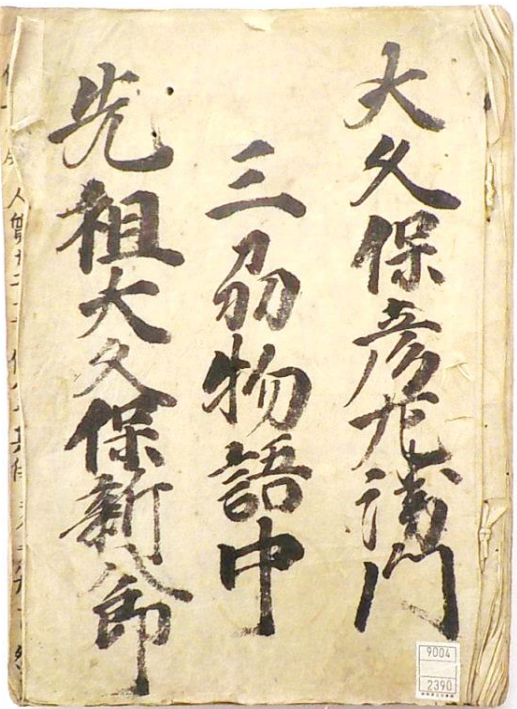 大久保彦左衛門
三刕物語中
先祖大久保新八郎
9004
2390